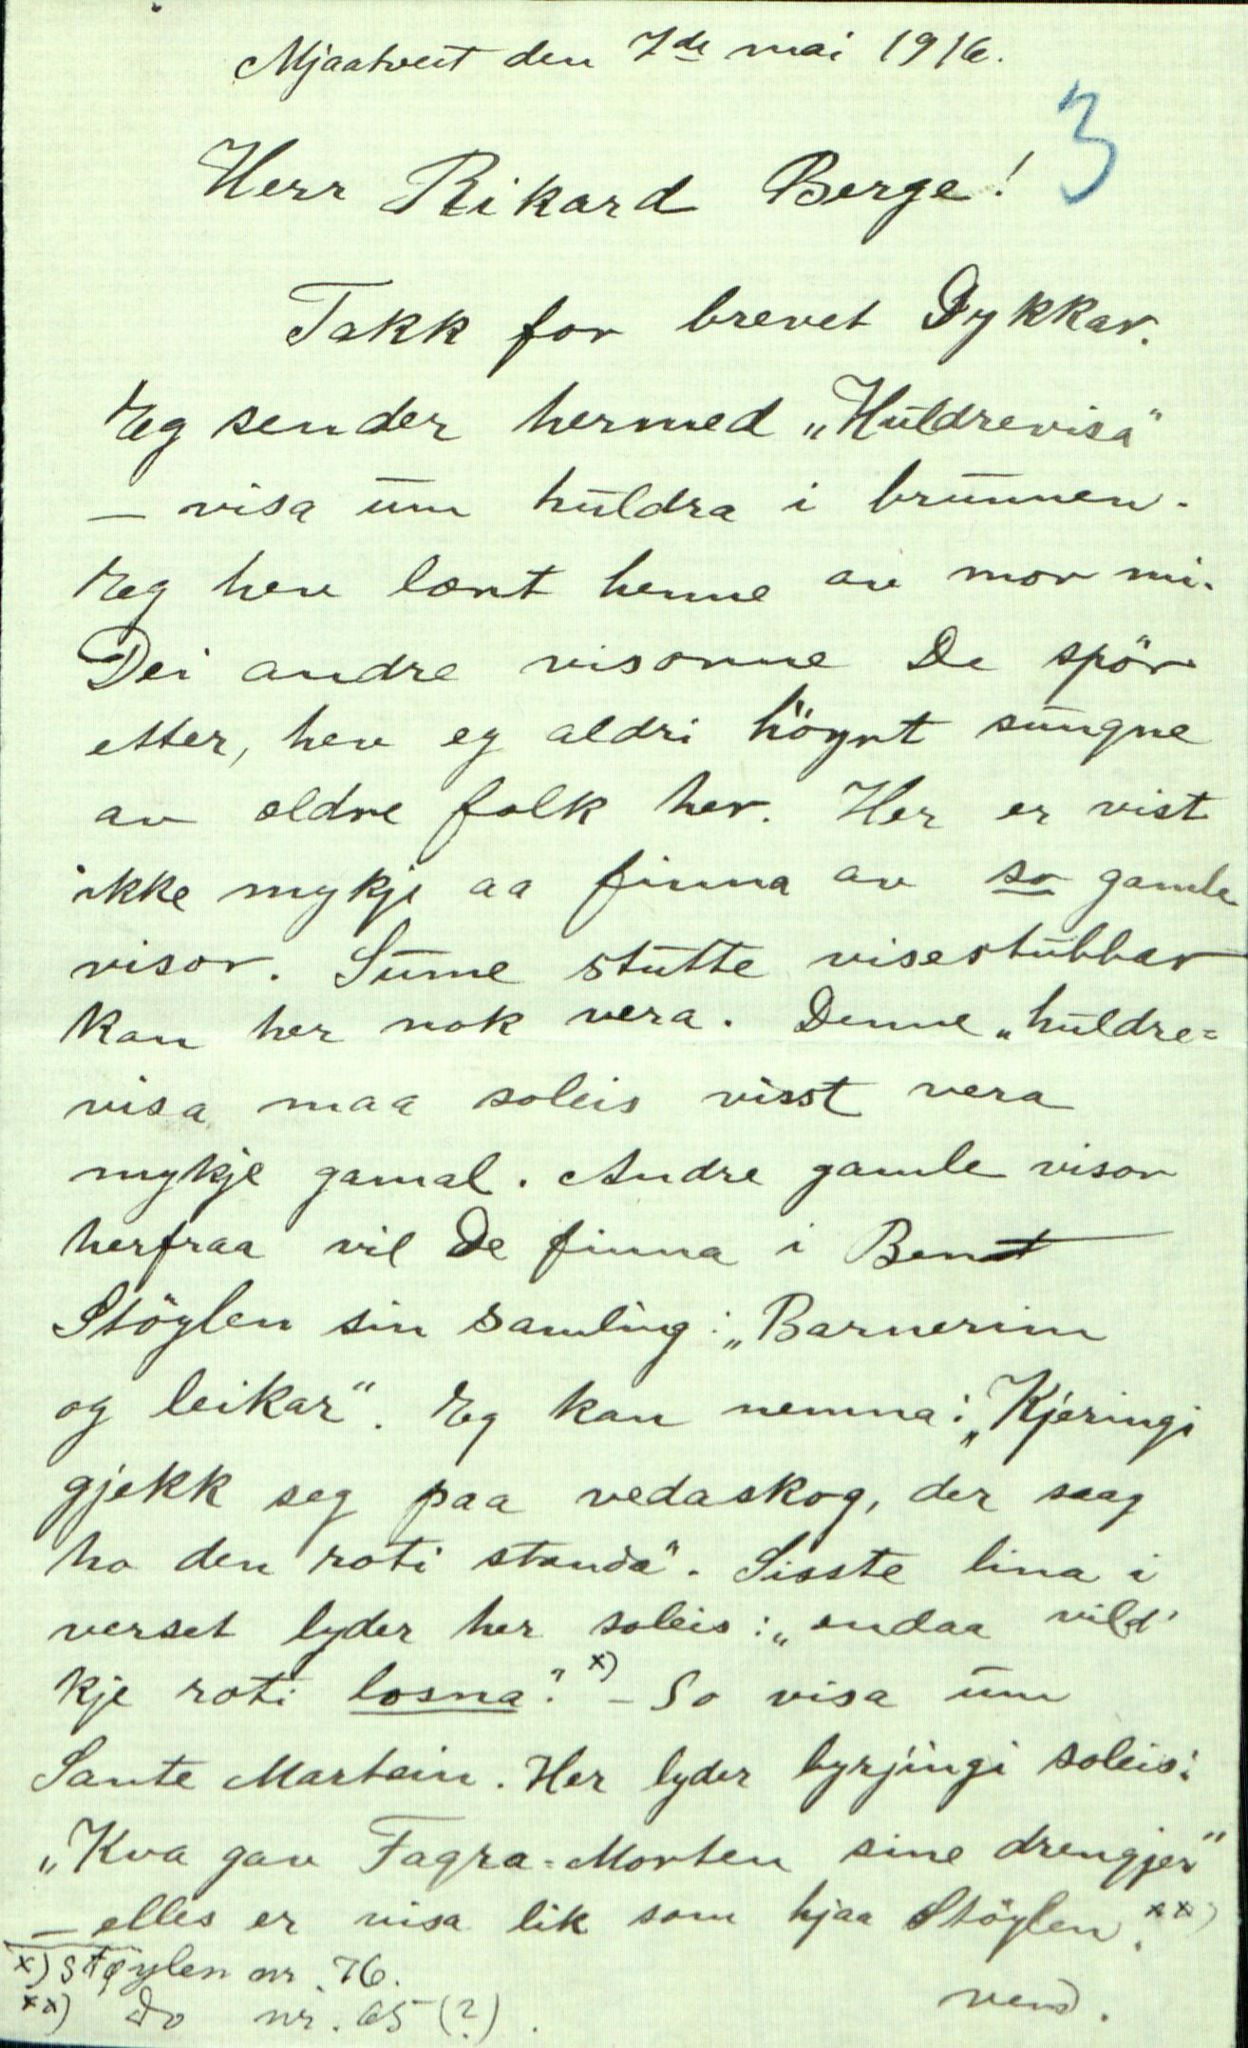 Mjaatveit den 7de mai 1916.
3
Herr Rikard Berge!
Takk for brevet Dykkar.
Eg sender hermed „Huldrevisa"
— visa um huldra i brunnen.
Eg hev lært henne av mor mi.
Dei andre visorne De spör
etter, hev eg aldri höyrt sungne
av eldre folk her. Her er vist
ikke mykje aa finna av so gamle
visor. Sume stutte visestubbar
kan her nok vera. Denne „huldre=
visa maa soleis visst vera
mykje gamal. Andre gamle visor
herfraa vil De finna i Bernt
Stöylen sin samling: „Barnerim
og leikar". Eg kan nemna: „Kjeringi
gjekk seg paa vedaskog, der saag
ho den roti standa". Sisste lina i
verset lyder her soleis: „endaa vild'
kje roti losna". x) – So visa um
Sante Martein. Her lyder byrjingi soleis:
„Kva gav Fagra-Morten sine drengjer"
— elles er visa lik som hjaa Stöylen. xx)
x) Støylen nr. 76.
xx) Do nr. 65 (?).
vend.